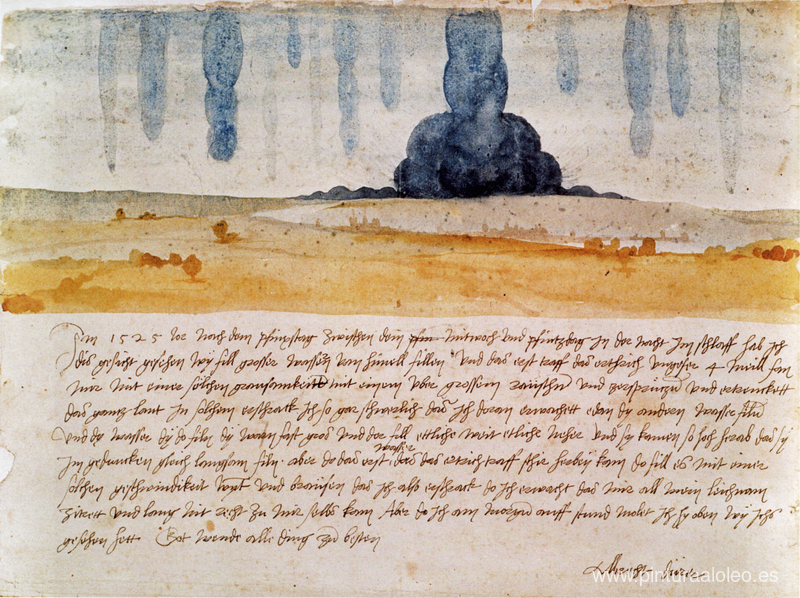 Im 1525 Jor nach dem pfinxstag zwischen dem mitwoch und pfintzdag in der nacht im schlaff hab ich
dis gesicht gesehen wy fill grosser wassern vom himell fillen Und das erst traff das erthrich ungefer 4 meill fan
mir mit einer solchen grausamkeitt mit einem uber grossem raüschn und zersprützn und ertrenckett
das gantz lant In solchem erschrack ich so gar schwerlich das ich doran erwachett edan dy andern wasser filn
Und dy wasser dy do filn dy warn fast gros und der fill ettliche weit etliche neher und sy kamen so hoch herab das sy
im gedancken gleich langsam filn. aber do das erst wasser das das ertrich traff schir herbey kam do fill es mit einer
solchen geschwindikeit wynt und braüsen das ich also erschrack do ich erwacht das mir all mein leichnam
zitrett und lang nit recht zu mir selbs kam Aber do ich am morgn auff stund molet ich hy oben wy ichs
gesehen hett. Got wende alle ding zu besten
Albrecht dürer
www.pinturaaloleo.es